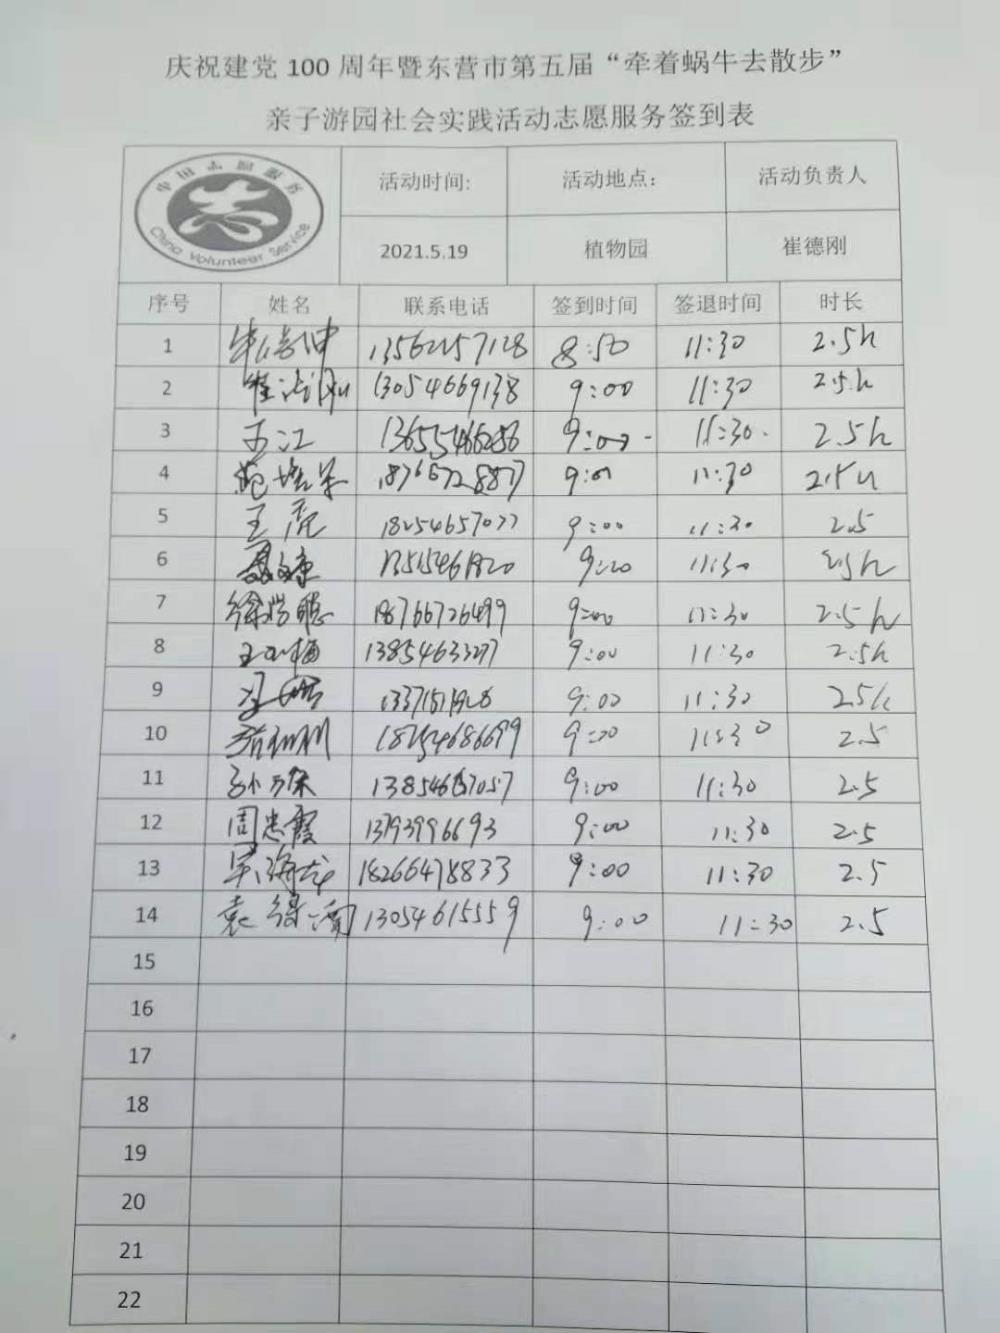 庆祝建党 100 周年暨东营市第五届“牵着蜗牛去散步”
亲子游园社会实践活动志愿服务签到表
中国志愿服务
China Volunteer Service
活动时间: 活动地点: 活动负责人
2021.5.19 植物园 崔德刚
序号 姓名 联系电话 签到时间 签退时间 时长
1 13562257128 8:50 11:30 2.5h
2 崔德刚 13054669138 9:00 11:30 2.5h
3 王江 9:00 11:30 2.5h
4 9:00 11:30 2.5h
5 王虎 18254657077 9:00 11:30 2.5
6 9:20 11:30 2.5h
7 徐岩聪 18766726499 9:00 11:30 2.5h
8 9:00 11:30 2.5h
9 9:00 11:30 2.5h
10 18254686699 9:00 11:30 2.5
11 9:00 11:30 2.5
12 周忠霞 13793996693 9:00 11:30 2.5
13 吴海龙 18266478833 9:00 11:30 2.5
14 13054615559 9:00 11:30 2.5
15
16
17
18
19
20
21
22